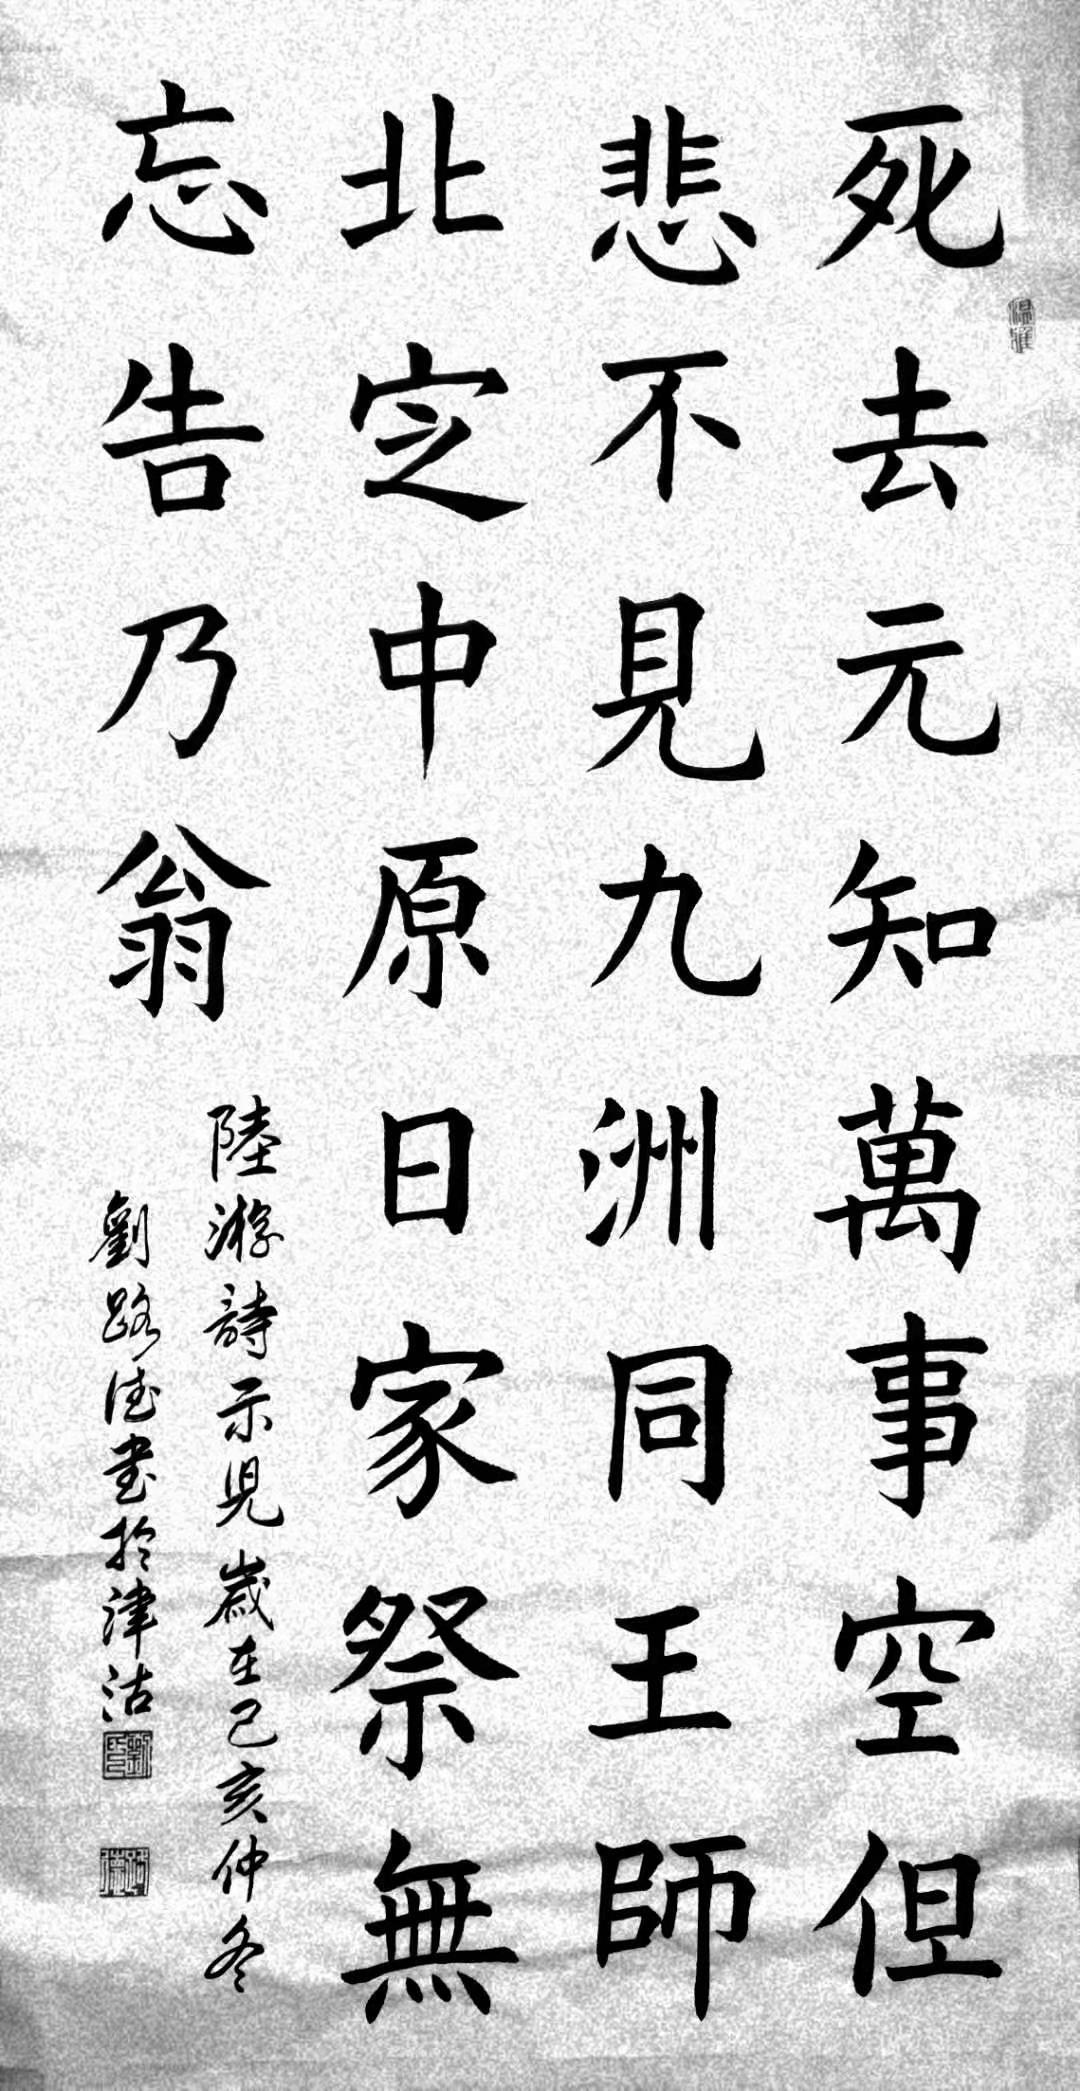 死去元知萬事空但
悲不見九洲同王師
北定中原日家祭無
忘告乃翁
陸游詩示兒歲在己亥仲冬
劉路德書於津沽